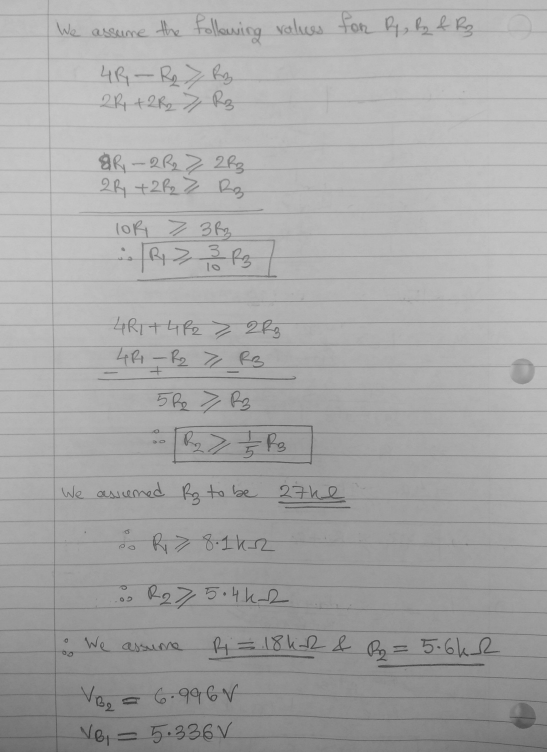 We assume the following values for R₁, R₂ & R₃
4R₁ − R₂ ⩾ R₃
2R₁ + 2R₂ ⩾ R₃
8R₁ − 2R₂ ⩾ 2R₃
2R₁ + 2R₂ ⩾ R₃
10R₁ ⩾ 3R₃
∴ R₁ ⩾ 3/10 R₃
4R₁ + 4R₂ ⩾ 2R₃
4R₁ − R₂ ⩾ R₃
− + −
5R₂ ⩾ R₃
∴ R₂ ⩾ 1/5 R₃
We assumed R₃ to be 27kΩ
∴ R₁ ⩾ 8.1kΩ
∴ R₂ ⩾ 5.4kΩ
∴ We assume R₁ = 18kΩ & R₂ = 5.6kΩ
V_B₂ = 6.996V
V_B₁ = 5.336V